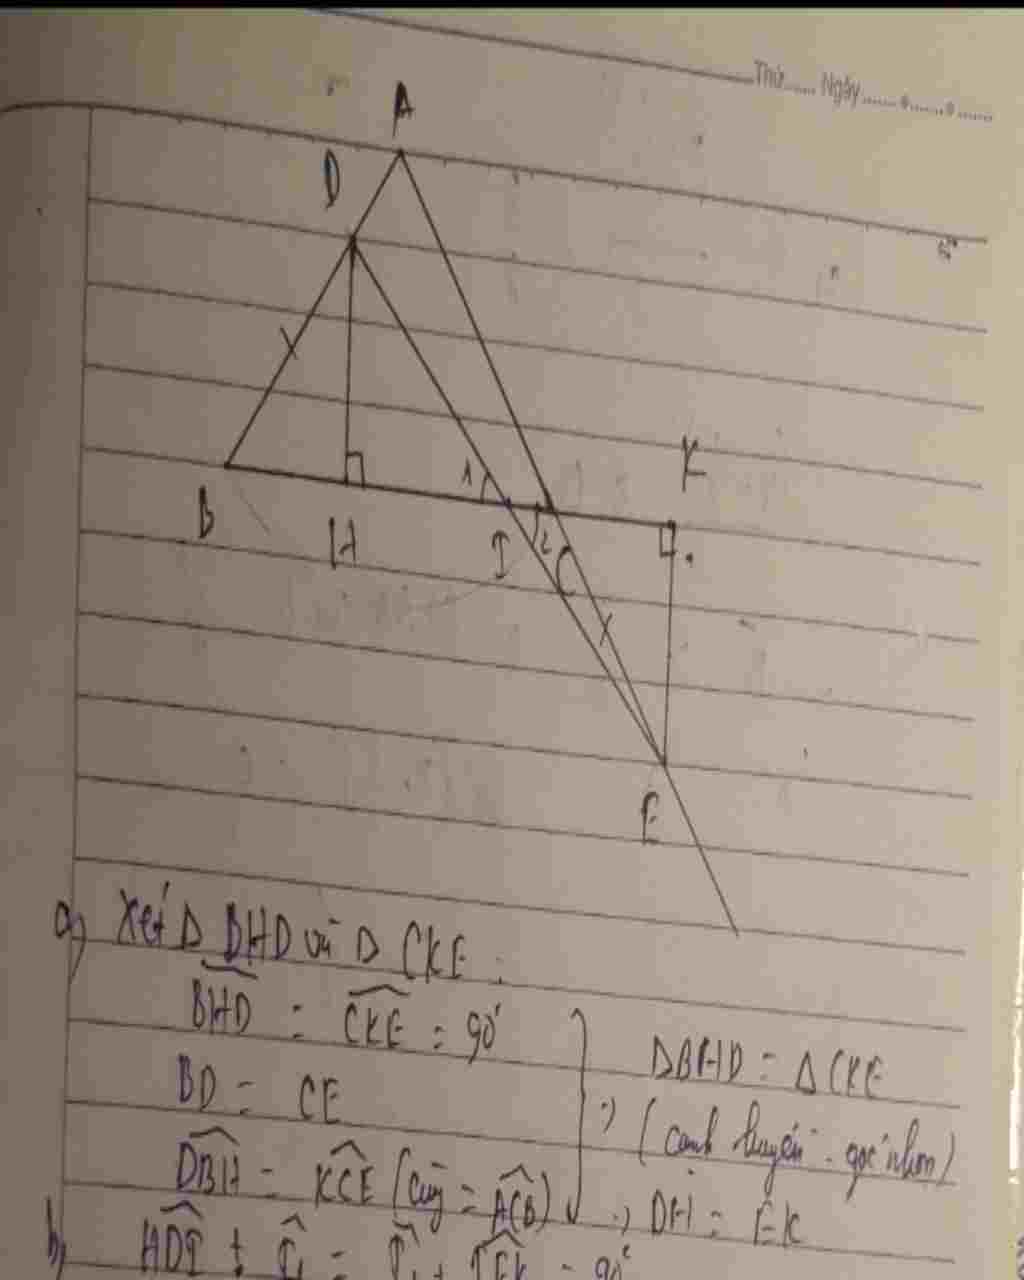 Thứ...... Ngày............
A
D
K
1
B
H
I
2
C
E
a) Xét Δ BHD và Δ CKE :
BHD = CKE = 90°
BD = CE
DBH = KCE (cùng = ACB)
=> ΔBHD = ΔCKE
(cạnh huyền - góc nhọn)
=> DH = EK
b) HDI + I₁ = I₂ + IEK = 90°